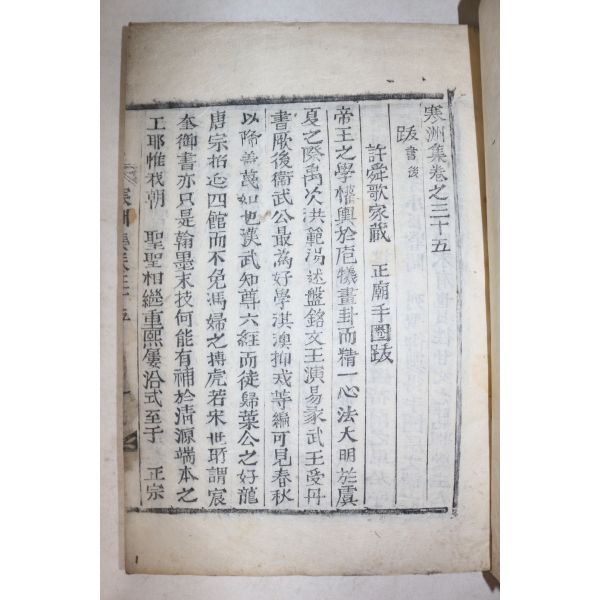 寒洲集卷之三十五
跋 書後
許舜歌家藏 正廟手圈跋
帝王之學權輿於庖犧畫卦而精一心法大明於虞
夏之際禹次洪範湯述盤銘文王演易彖武王受丹
書厥後衛武公最為好學淇澳抑戒等編可見春秋
以降蓋蔑如也漢武知尊六經而徒歸葉公之好龍
唐宗招延四館而不免馮婦之搏虎若宋世所謂宸
奎御書亦只是翰墨末技何能有補於清源端本之
工耶惟我朝 聖聖相繼重熙屢洽式至于 正宗
寒洲集卷三十五